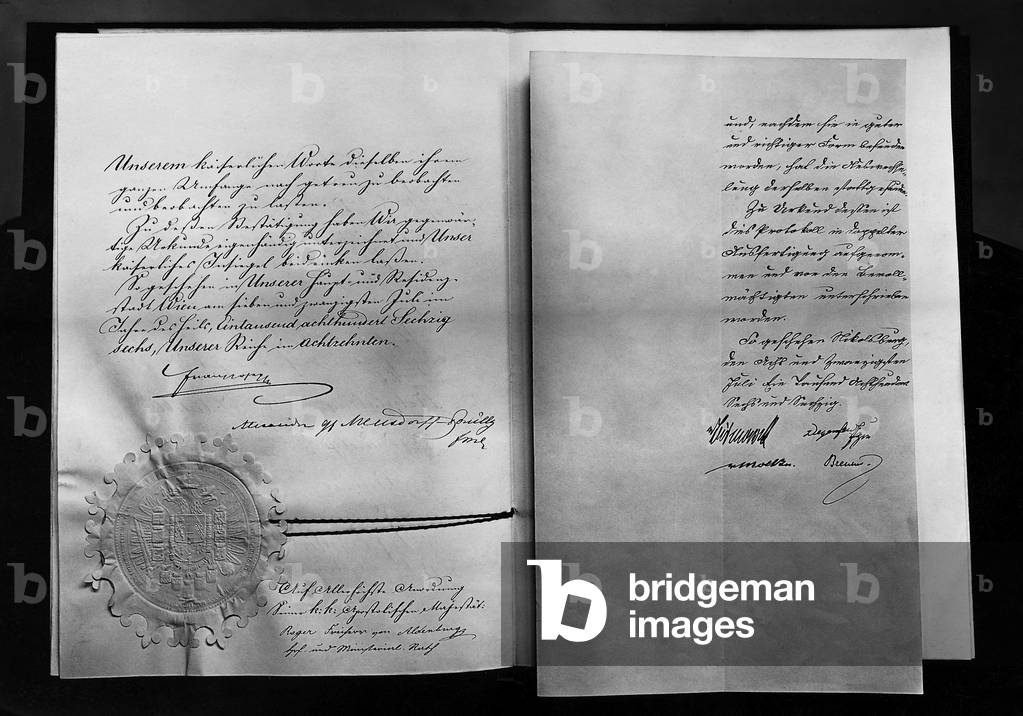 Unserem kaiserlichen Worte dieselben ihrem
ganzen Umfange nach getreu zu beobachten
und beobachten zu lassen.
Zu deßen Bestätigung haben Wir gegenwär-
tige Urkunde eigenhändig unterzeichnet und Unser
kaiserliches Insiegel beidrucken laßen.
So geschehen in Unserer Haupt- und Residenz-
stadt Wien am sieben und zwanzigsten Juli im
Jahre des Heils, Eintausend achthundert Sechzig
sechs, Unserer Reiche im Achtzehnten.
Franz Joseph
Alexander Gf Mensdorff-Pouilly
FML
Auf Allerhöchste Anordnung
Seiner k.k. Apostolischen Majestät:
Roger Freiherr von Aldenburg
Hof und Ministerial-Rath
und, nachdem sie in guter
und richtiger Form befunden
worden, hat die Auswechse-
lung derselben stattgefunden.
Zu Urkund dessen ist
dies Protokoll in doppelter
Ausfertigung aufgenom-
men und von den Bevoll-
mächtigten unterschrieben
worden.
So geschehen Nikolsburg,
den Acht und Zwanzigsten
Juli Ein Tausend Achthundert
Sechs und Sechzig.
v Bismarck Degenfeld
v Moltke. Brenner
bridgeman
images